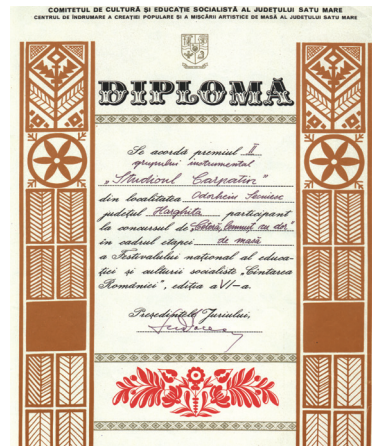 COMITETUL DE CULTURĂ ȘI EDUCAȚIE SOCIALISTĂ AL JUDEȚULUI SATU MARE
CENTRUL DE ÎNDRUMARE A CREAȚIEI POPULARE ȘI A MIȘCĂRII ARTISTICE DE MASĂ AL JUDEȚULUI SATU MARE
DIPLOMĂ
Se acordă premiul II
grupului instrumental
„Studioul Carpatin"
din localitatea Odorheiu Secuiesc
județul Harghita participant
la concursul de cu dor"
în cadrul etapei de masă
a Festivalului național al educa-
ției și culturii socialiste „Cîntarea
României", ediția a VI-a.
Președintele Juriului,